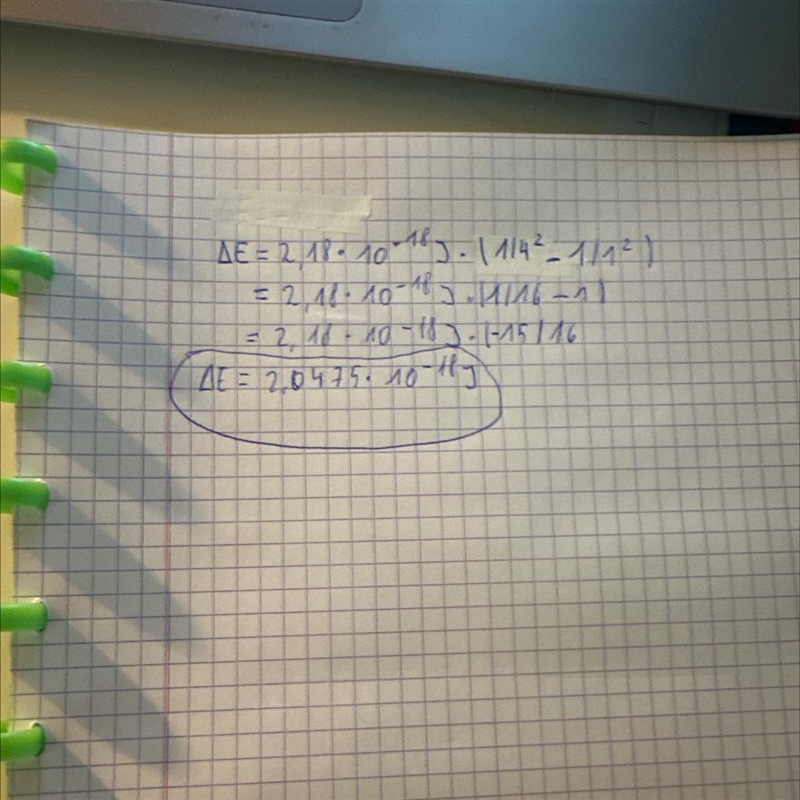 ΔE = 2,18 · 10⁻¹⁸ J · (1/4² - 1/1²)
= 2,18 · 10⁻¹⁸ J · (1/16 - 1)
= 2,18 · 10⁻¹⁸ J · (-15/16
ΔE = 2,0475 · 10⁻¹⁸ J